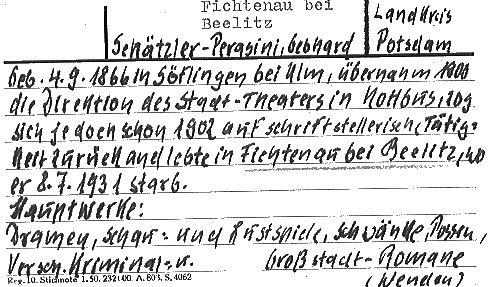 Fichtenau bei
Beelitz
Landkreis
Potsdam
Schätzler-Perasini, Gebhard
Geb. 4.9.1866 in Söflingen bei Ulm, übernahm 1900
die Direktion des Stadt-Theaters in Kottbus, zog
sich jedoch schon 1902 auf schriftstellerisch. Tätig-
keit zurück und lebte in Fichtenau bei Beelitz, wo
er 8.7.1931 starb.
Hauptwerke:
Dramen, Schau- und Lustspiele, Schwänke, Possen,
Versch. Kriminal- u. Großstadt-Romane
(Wenden)
Reg. 10. Stichnote 1. 50. 232100. A. 803. S. 4062